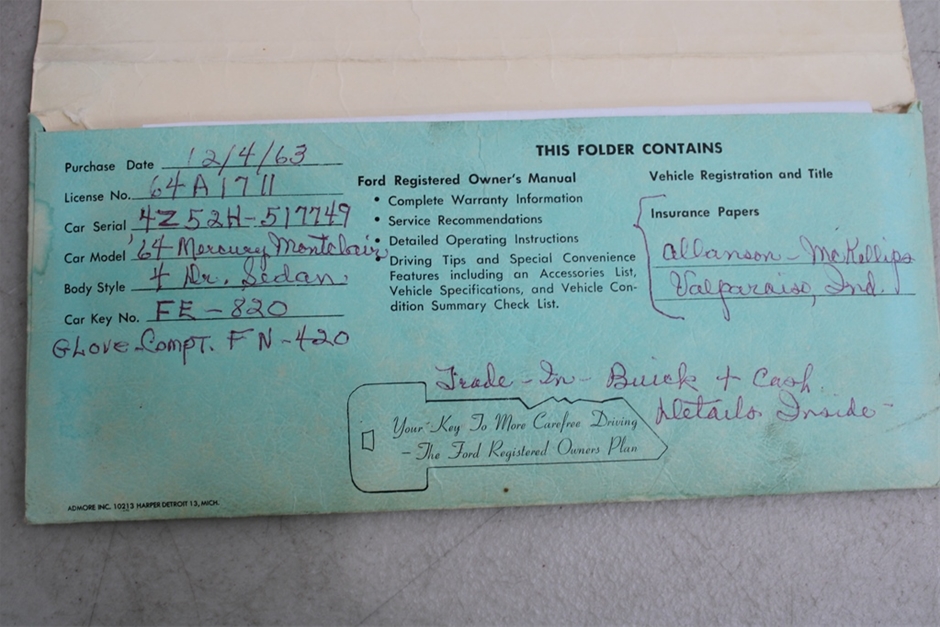 Purchase Date 12/4/63
License No. 64A1711
Car Serial 4Z52H-517749
Car Model '64 Mercury Montclair
Body Style 4 Dr. Sedan
Car Key No. FE-820
Glove Compt. FN-420
THIS FOLDER CONTAINS
Ford Registered Owner's Manual
• Complete Warranty Information
• Service Recommendations
• Detailed Operating Instructions
• Driving Tips and Special Convenience
Features including an Accessories List,
Vehicle Specifications, and Vehicle Con-
dition Summary Check List.
Vehicle Registration and Title
Insurance Papers
Allanson - McKellips
Valparaiso, Ind.
Trade-In - Buick + Cash
Details Inside -
Your Key To More Carefree Driving
– The Ford Registered Owners Plan
ADMORE INC. 10213 HARPER DETROIT 13, MICH.